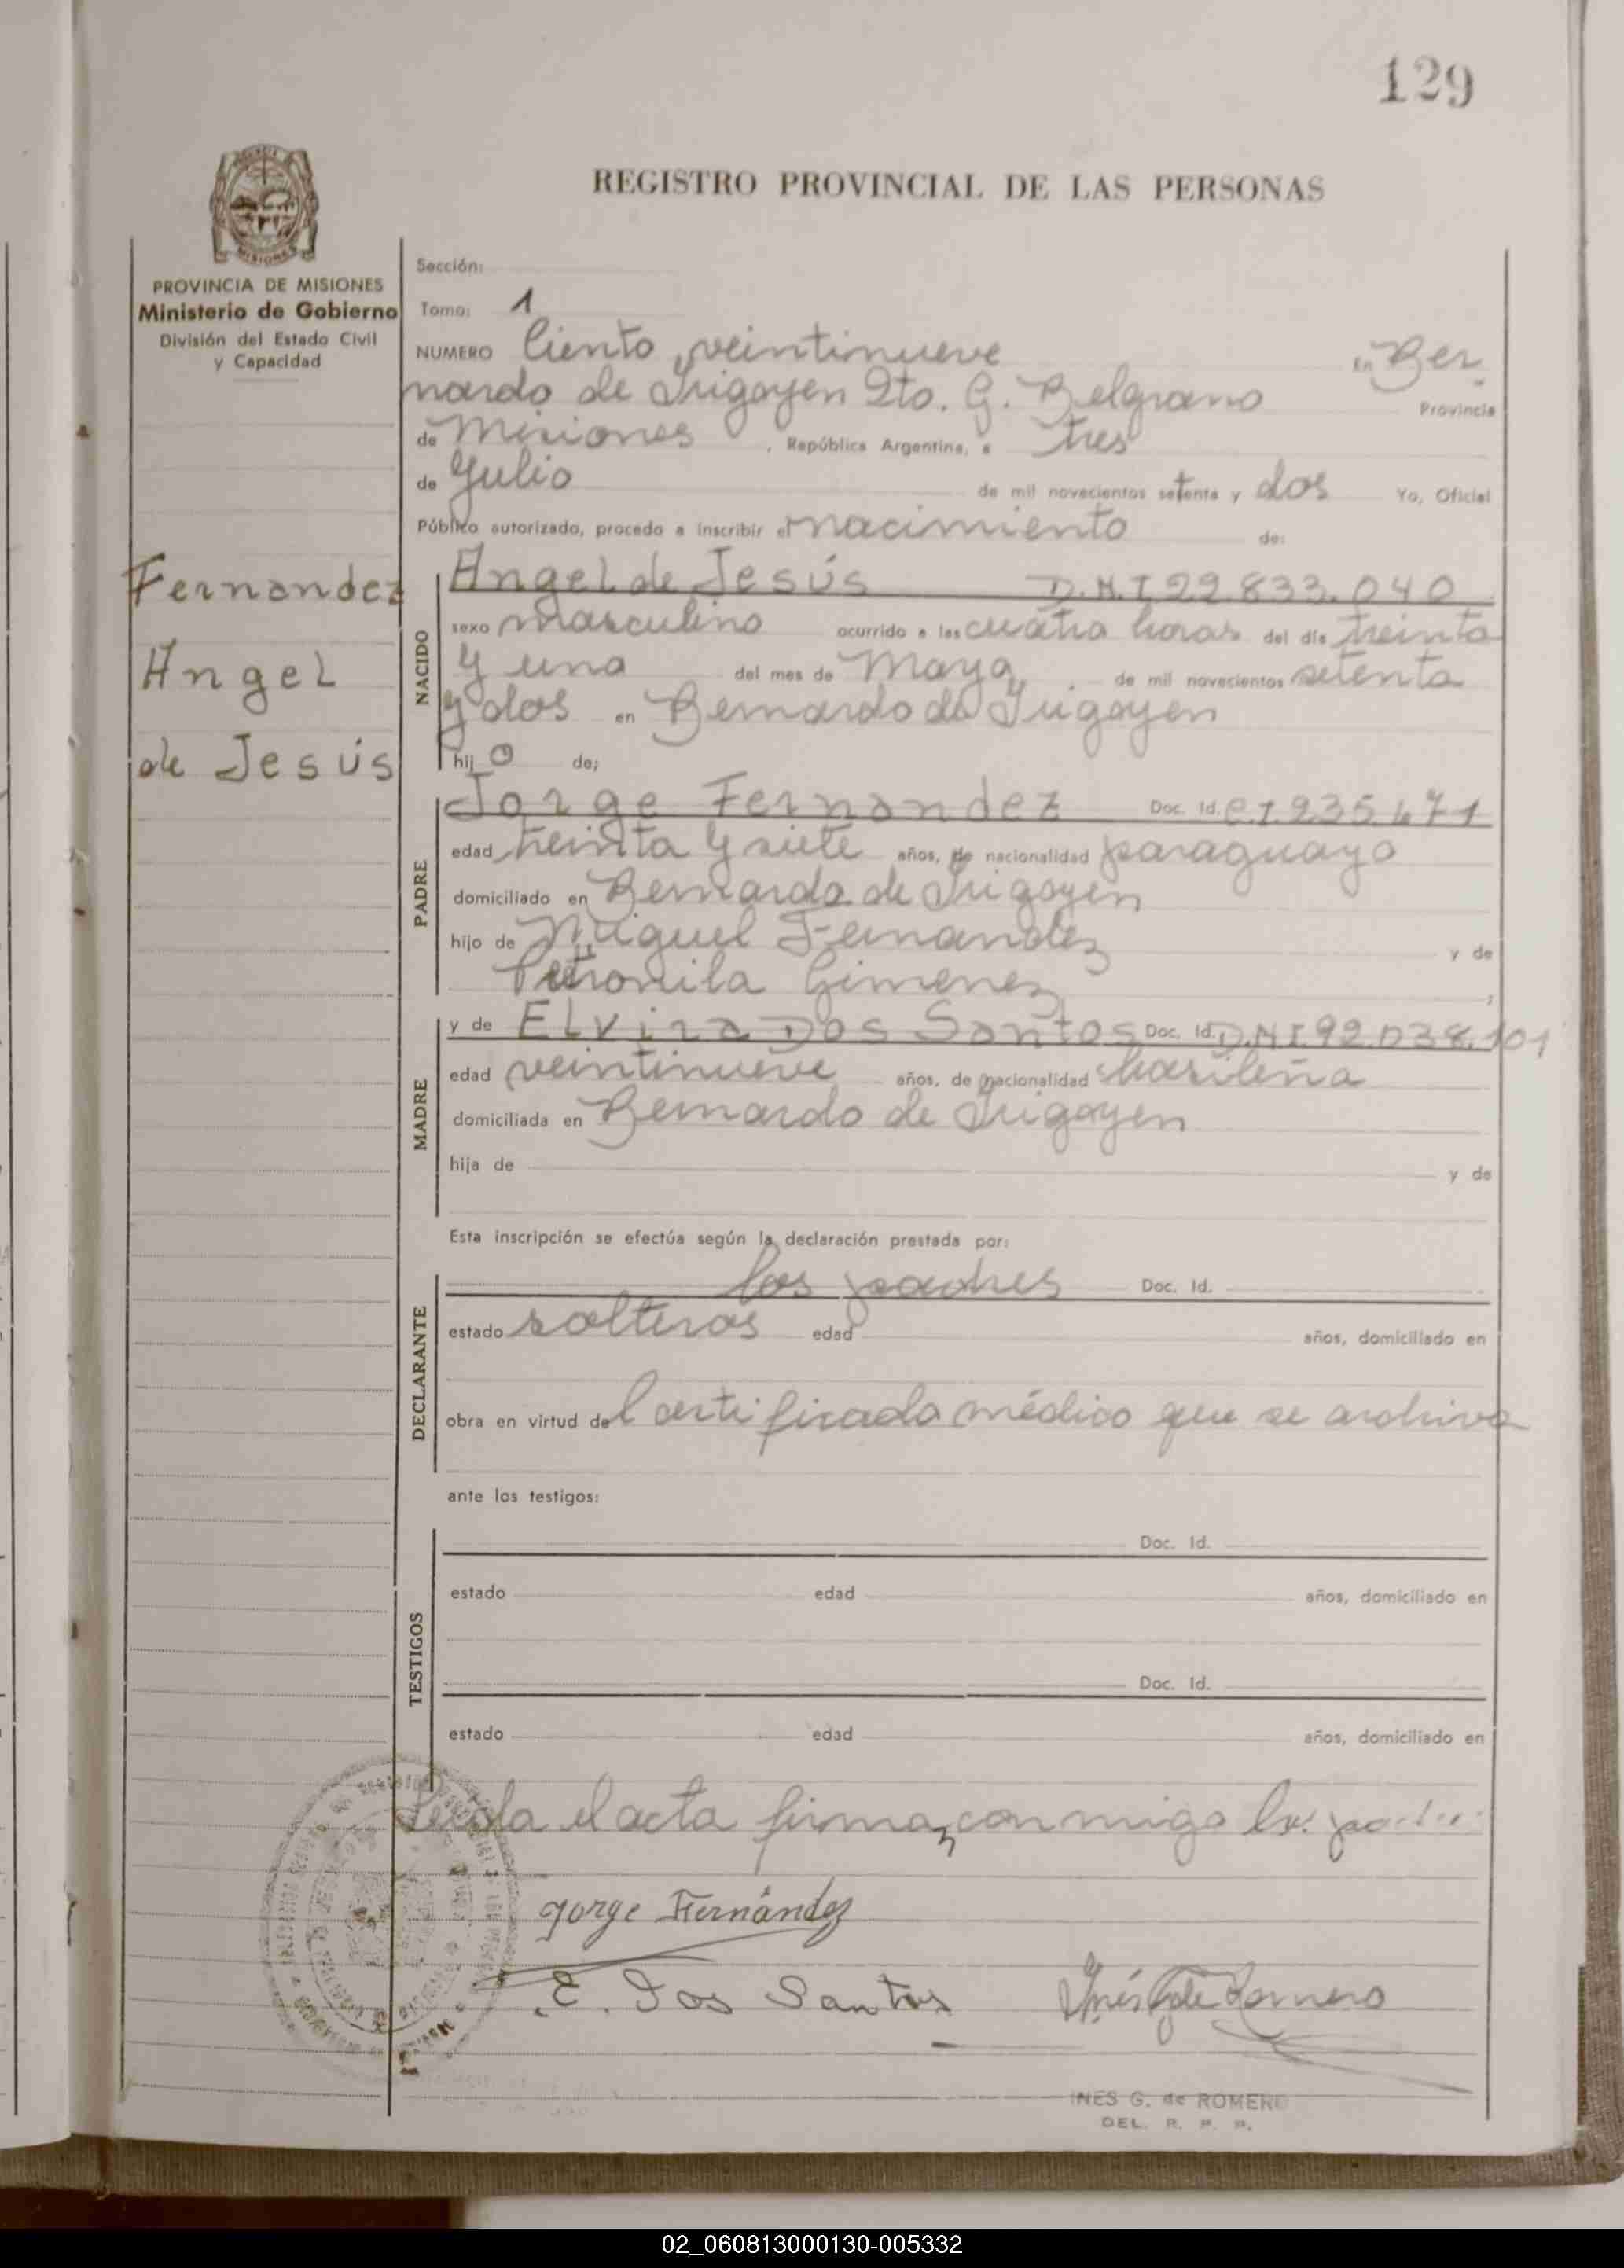 129
REGISTRO PROVINCIAL DE LAS PERSONAS
MISIONES
PROVINCIA DE MISIONES
Ministerio de Gobierno
División del Estado Civil
y Capacidad
Fernandez
Angel
de Jesús
Sección:
Tomo: 1
NUMERO Ciento veintinueve En Ber
nardo de Irigoyen Dto. G. Belgrano Provincia
de Misiones, República Argentina, a tres
de Julio de mil novecientos setenta y dos Yo, Oficial
Público autorizado, procedo a inscribir el nacimiento de:
NACIDO
Angel de Jesús D.N.I 22.833.040
sexo masculino ocurrido a las cuatro horas del día treinta
y uno del mes de Mayo de mil novecientos setenta
y dos en Bernardo de Irigoyen
hij o de;
PADRE
Jorge Fernandez Doc. Id. C.I. 235.471
edad treinta y siete años, de nacionalidad paraguayo
domiciliado en Bernardo de Irigoyen
hijo de Miguel Fernandez y de
Petronila Gimenez ;
MADRE
y de Elvira Dos Santos Doc. Id. D.N.I. 92.038.101
edad veintinueve años, de nacionalidad brasileña
domiciliada en Bernardo de Irigoyen
hija de y de
Esta inscripción se efectúa según la declaración prestada por:
DECLARANTE
los padres Doc. Id.
estado solteros edad años, domiciliado en
obra en virtud de Certificado médico que se archiva
ante los testigos:
TESTIGOS
Doc. Id.
estado edad años, domiciliado en
Doc. Id.
estado edad años, domiciliado en
Leida el acta firman conmigo los padres
Jorge Fernández
E. Dos Santos Inés G de Romero
INES G. de ROMERO
DEL. R. P. P.
02_060813000130-005332